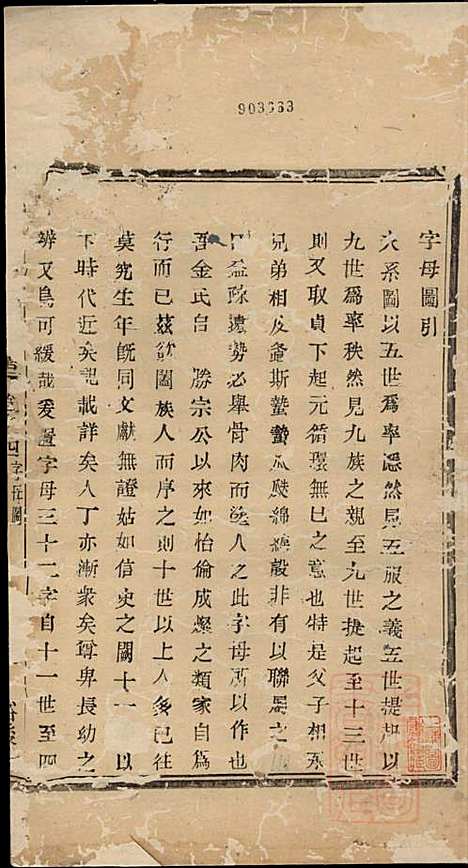 903663
字母圖引
夫系圖以五世爲率隱然見五服之義五世提起以
九世爲率秩然見九族之親至九世提起至十三世
則又取貞下起元循環無已之意也特是父子相承
兄弟相及螽斯蟄蟄瓜瓞綿綿設非有以聯屬之
日益疎遠勢必舉骨肉而途人之此字母所以作也
吾金氏自 勝宗公以來如怡倫成燦之類家自爲
行而已茲欲闔族人而序之則十世以上人多已往
莫究生年旣同文獻無證姑如信史之闕十一 以
下時代近矣記載詳矣人丁亦漸衆矣尊卑長幼之
辨又烏可緩哉爰置字母三十二字自十一世至四
四 字母圖